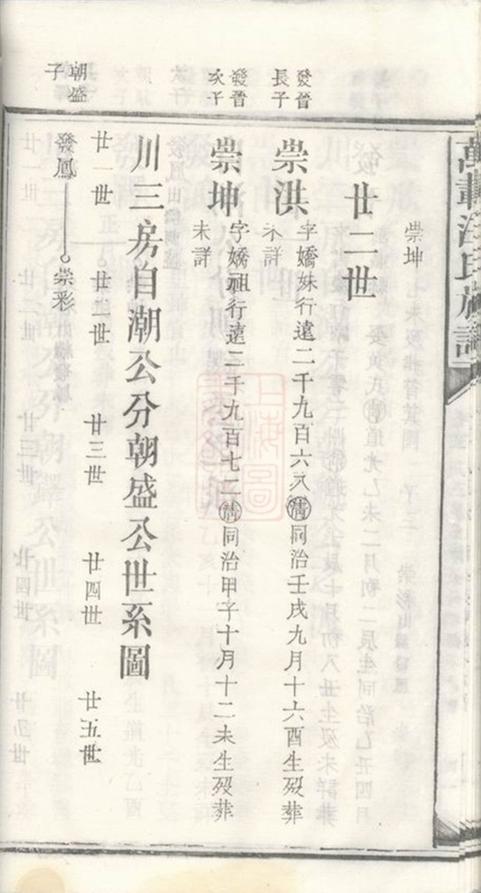 萬載汪氏族譜
崇坤
廿二世
發晉長子
崇洪 字嬌妹行遠二千九百六又清同治壬戌九月十六酉生歿葬
未詳
發晉次子
崇坤 字嬌祖行遠二千九百七二清同治甲子十月十二未生歿葬
未詳
川三房自潮公分朝盛公世系圖
廿一世 廿二世 廿三世 廿四世 廿五世
朝盛子
發鳳 崇彩
上海圖